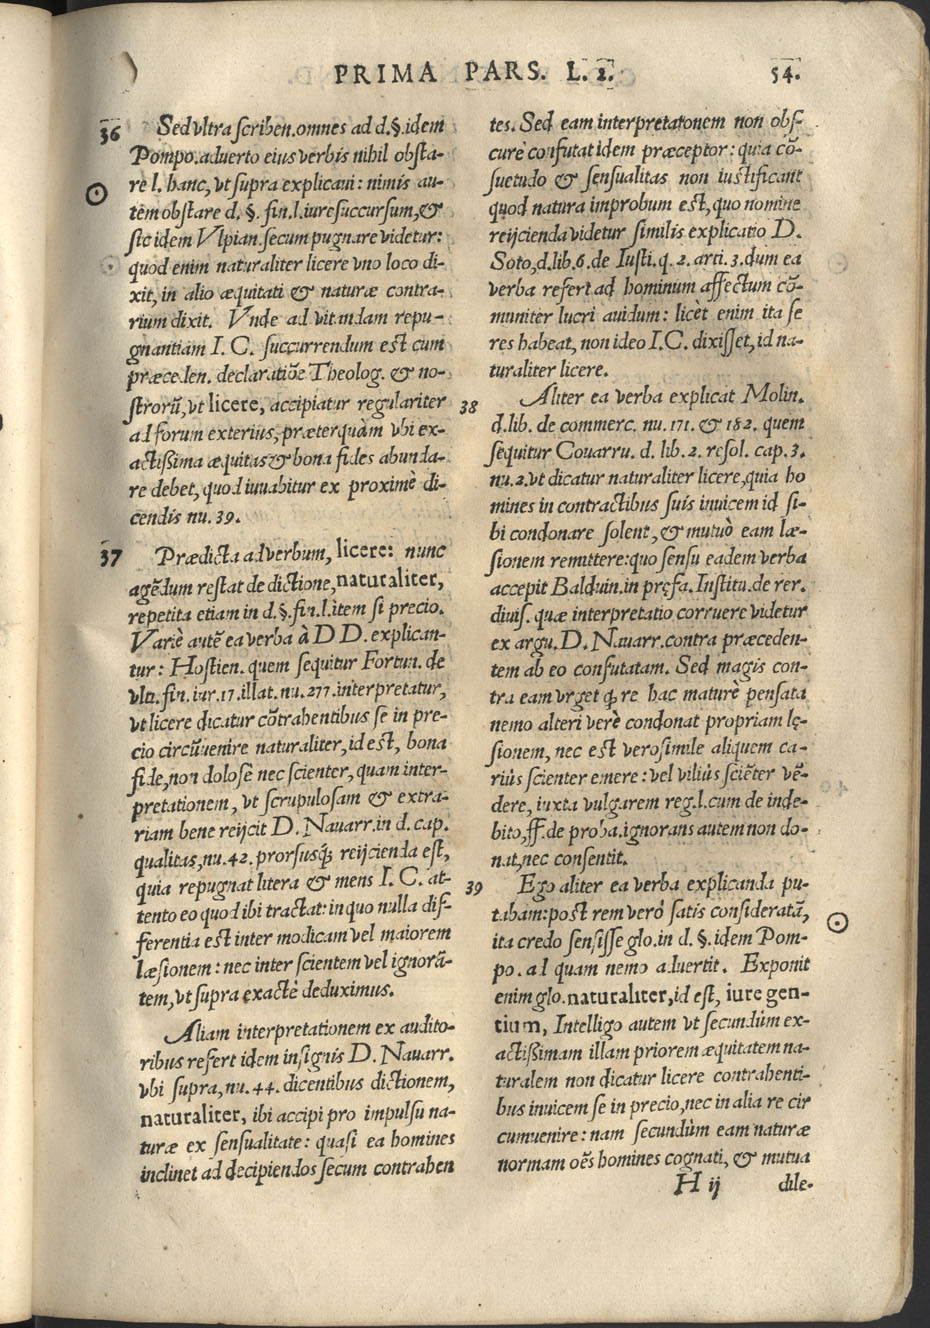 PRIMA PARS. L. 2.
54.
36 Sed vltra scriben. omnes ad d. §. idem
Pompo. aduerto eius verbis nihil obsta-
re l. hanc, vt supra explicaui: nimis au-
tem obstare d. §. fin. l. iure succursum, &
sic idem Vlpian. secum pugnare videtur:
quod enim naturaliter licere vno loco di-
xit, in alio æquitati & naturæ contra-
rium dixit. Vnde ad vitandam repu-
gnantiam I. C. succurrendum est cum
præceden. declaratiōe Theolog. & no-
strorū, vt licere, accipiatur regulariter
ad forum exterius, præterquàm vbi ex-
actißima æquitas & bona fides abunda-
re debet, quod iuuabitur ex proximè di-
cendis nu. 39.
37 Prædicta ad verbum, licere: nunc
agēdum restat de dictione, naturaliter,
repetita etiam in d. §. fin. l. item si precio.
Variè autē ea verba à D D. explican-
tur: Hostien. quem sequitur Fortun. de
vlti. fin. iur. 17. illat. nu. 277. interpretatur,
vt licere dicatur cōtrahentibus se in pre-
cio circūuenire naturaliter, id est, bona
fide, non dolosè nec scienter, quam inter-
pretationem, vt scrupulosam & extra-
riam bene reijcit D. Nauarr. in d. cap.
qualitas, nu. 42. prorsusq́; reijcienda est,
quia repugnat litera & mens I. C. at-
tento eo quod ibi tractat: in quo nulla dif-
ferentia est inter modicam vel maiorem
læsionem: nec inter scientem vel ignorā-
tem, vt supra exactè deduximus.
Aliam interpretationem ex audito-
ribus refert idem insignis D. Nauarr.
vbi supra, nu. 44. dicentibus dictionem,
naturaliter, ibi accipi pro impulsu na-
turæ ex sensualitate: quasi ea homines
inclinet ad decipiendos secum contrahen
tes. Sed eam interpretationem non obs-
curè confutat idem præceptor: quia cō-
suetudo & sensualitas non iustificant
quod natura improbum est, quo nomine
reijcienda videtur similis explicatio D.
Soto, d. lib. 6. de Iusti. q. 2. arti. 3. dum ea
verba refert ad hominum affectum cō-
muniter lucri auidum: licèt enim ita se
res habeat, non ideo I. C. dixisset, id na-
turaliter licere.
38 Aliter ea verba explicat Molin.
d. lib. de commerc. nu. 171. & 182. quem
sequitur Couarru. d. lib. 2. resol. cap. 3.
nu. 2. vt dicatur naturaliter licere, quia ho
mines in contractibus suis inuicem id si-
bi condonare solent, & mutuò eam læ-
sionem remittere: quo sensu eadem verba
accepit Balduin. in pręfa. Institu. de rer.
diuis. quæ interpretatio corruere videtur
ex argu. D. Nauarr. contra præceden-
tem ab eo confutatam. Sed magis con-
tra eam vrget q; re hac maturè pensata
nemo alteri verè condonat propriam lę-
sionem, nec est verosimile aliquem ca-
riùs scienter emere: vel viliùs sciēter vē-
dere, iuxta vulgarem reg. l. cum de inde-
bito, ff. de proba. ignorans autem non do-
nat, nec consentit.
39 Ego aliter ea verba explicanda pu-
tabam: post rem verò satis consideratā,
ita credo sensisse glo. in d. §. idem Pom-
po. ad quam nemo aduertit. Exponit
enim glo. naturaliter, id est, iure gen-
tium, Intelligo autem vt secundùm ex-
actißimam illam priorem æquitatem na-
turalem non dicatur licere contrahenti-
bus inuicem se in precio, nec in alia re cir
cumuenire: nam secundùm eam naturæ
normam oēs homines cognati, & mutua
H ij dile-